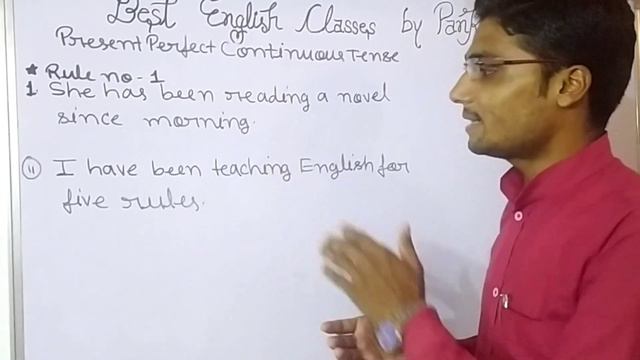 Best English Classes by Pan
Present Perfect Continuous Tense
* Rule no - 1
1 She has been reading a novel
since morning.
(11) I have been teaching English for
five rules.